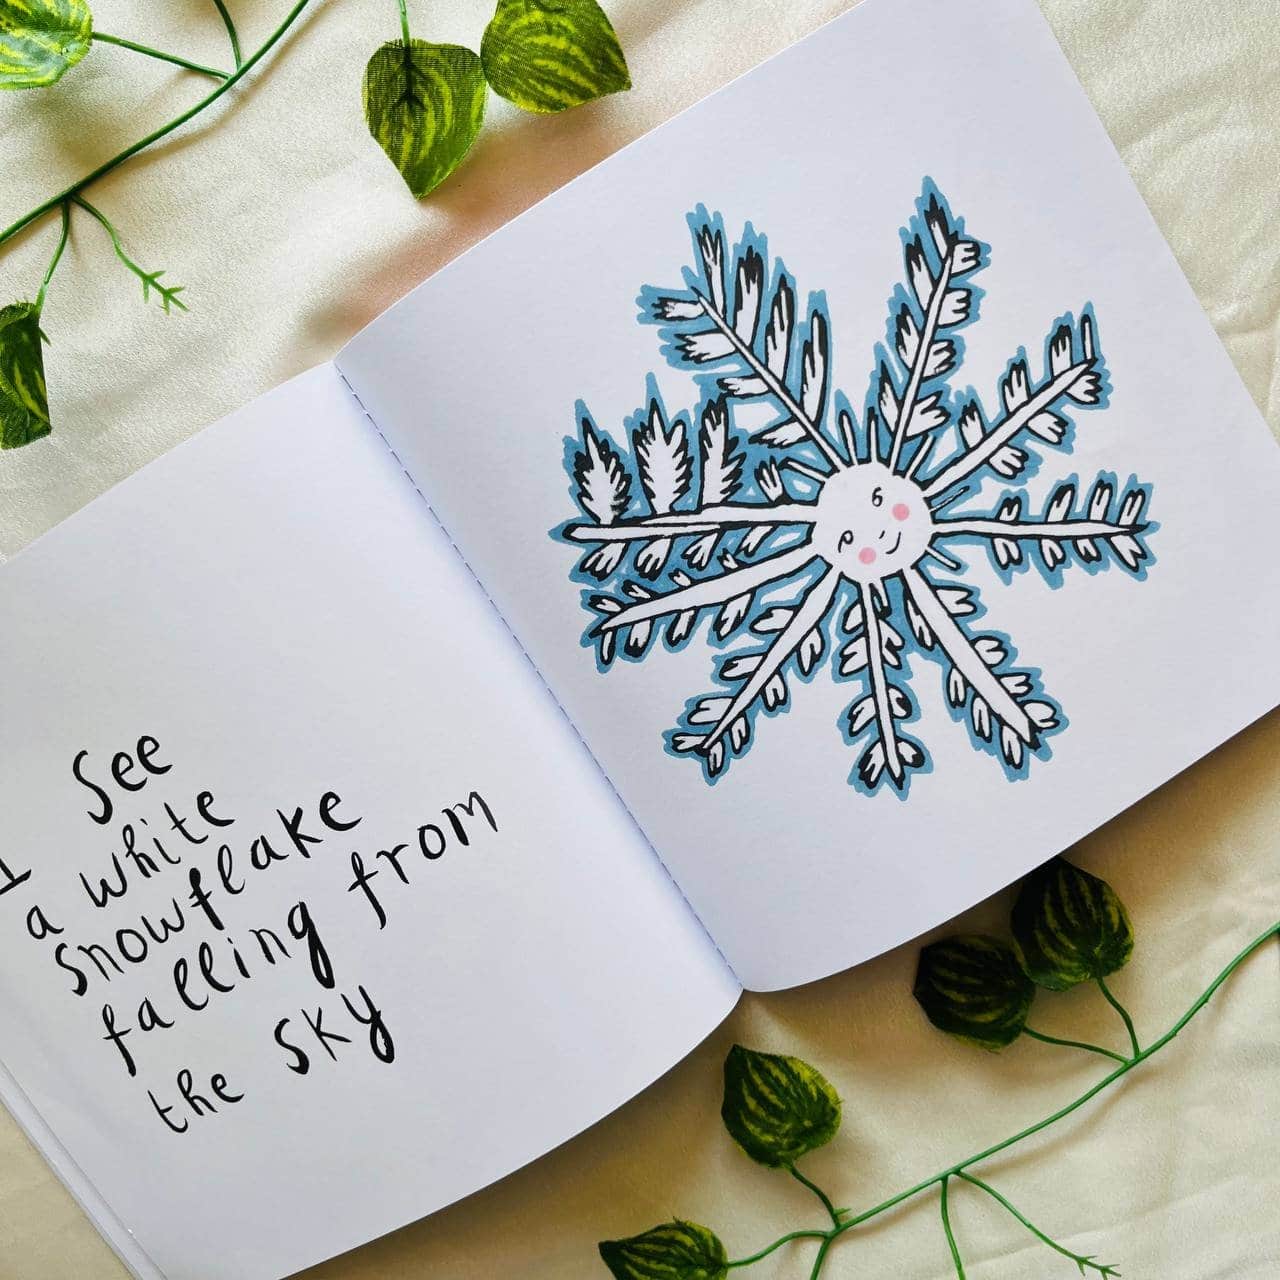 I See
a white
snowflake
falling from
the sky